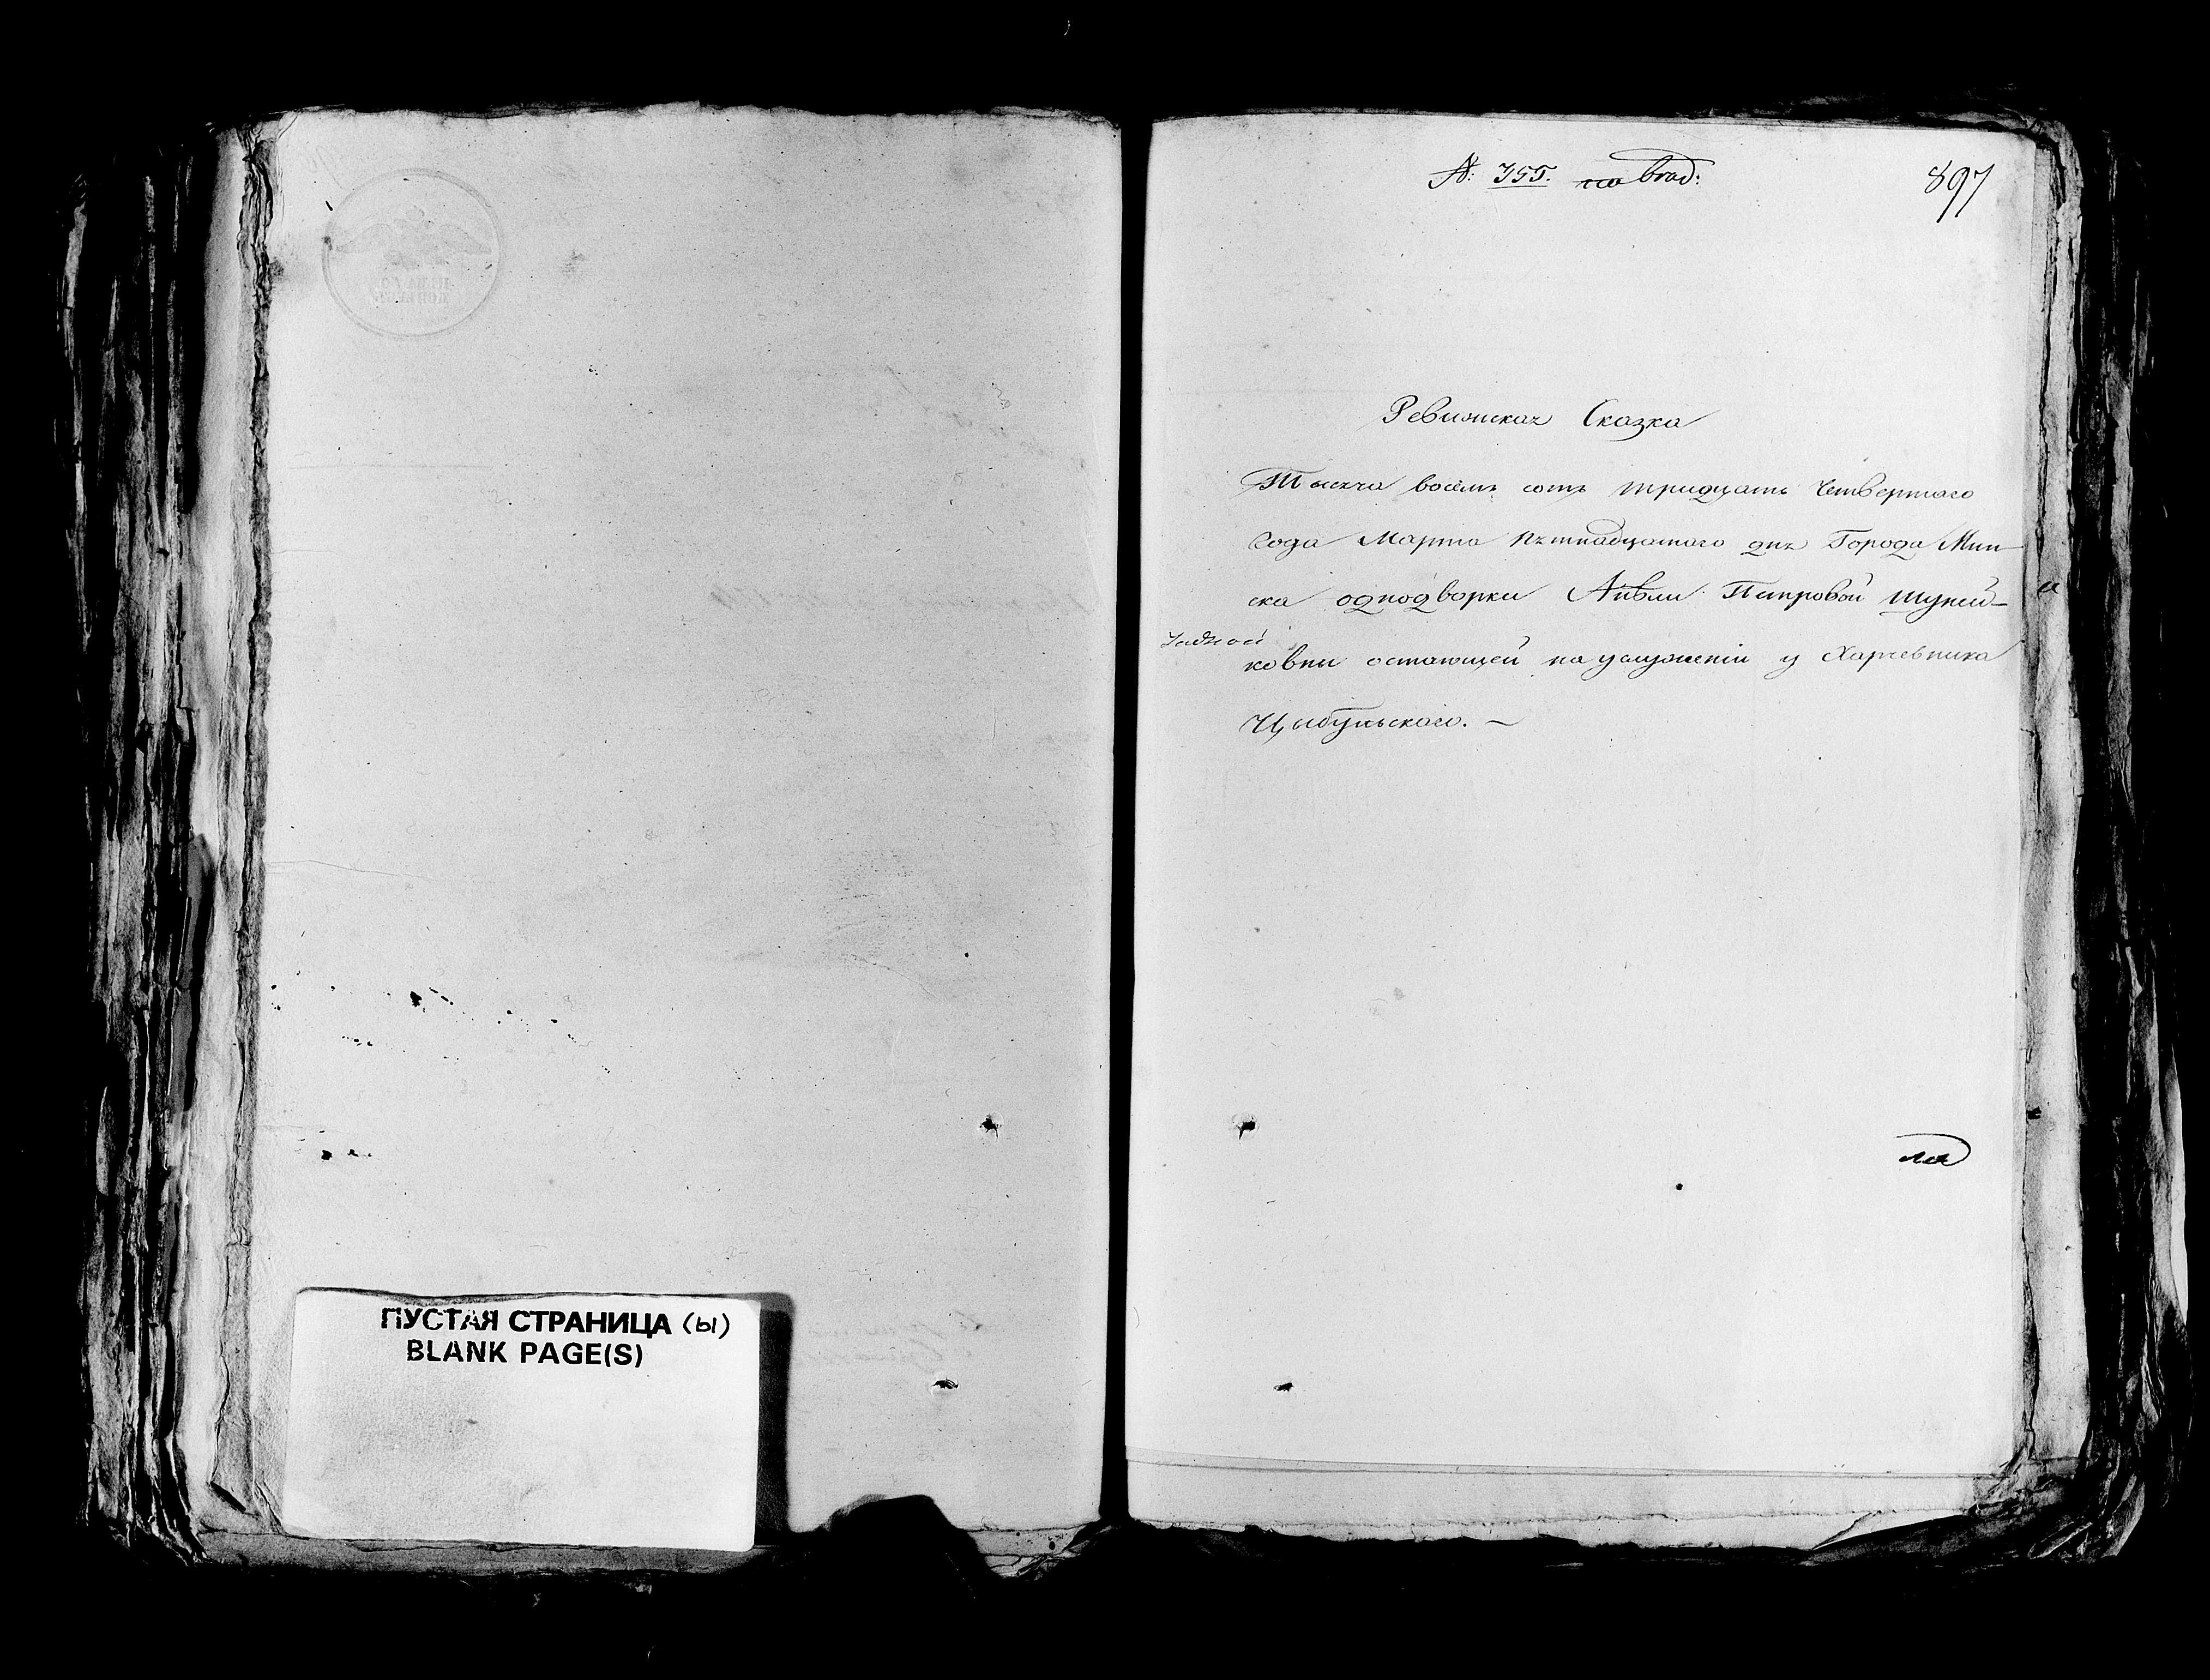 ПУСТАЯ СТРАНИЦА (ы)
BLANK PAGE(S)
№: 355.
897
Ревижская Сказка
Тысяча восемь сотъ тридцать четвертаго
года Марта пятнадцатаго дня Города Мин-
ска однодворки Петровой
ковны остающей на услуженіи у Харчевника
Цыбульскаго. —